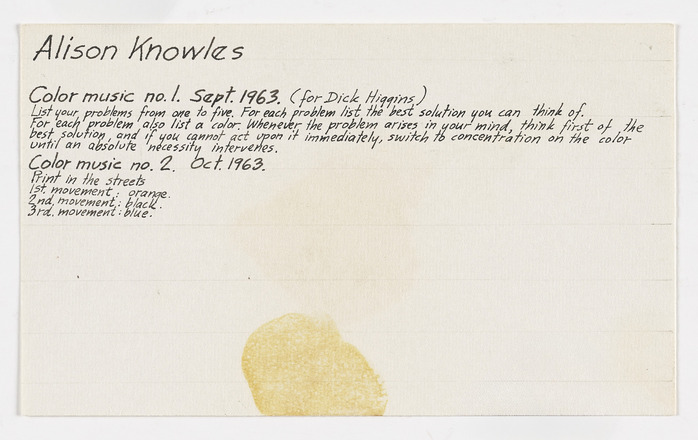 Alison Knowles
Color music no. 1. Sept. 1963. (for Dick Higgins)
List your problems from one to five. For each problem list the best solution you can think of.
For each problem also list a color. Whenever the problem arises in your mind, think first of the
best solution, and if you cannot act upon it immediately, switch to concentration on the color
until an absolute necessity intervenes.
Color music no. 2. Oct. 1963.
Print in the streets
1st. movement: orange.
2nd. movement: black.
3rd. movement: blue.